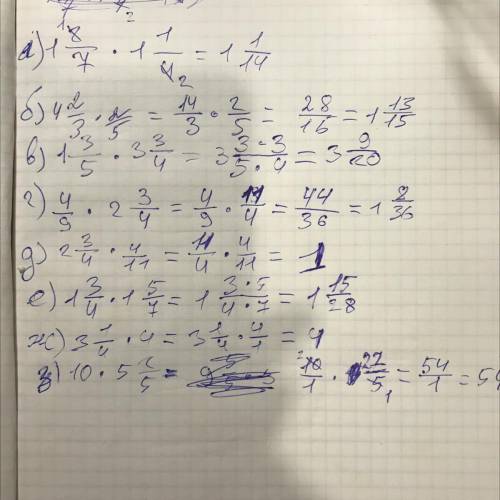 а) 1 8/7 · 1 1/4 2 = 1 1/14
б) 4 2/3 · 2/5 = 14/3 · 2/5 = 28/16 = 1 13/15
в) 1 3/5 · 3 3/4 = 3 3·3/5·4 = 3 9/20
г) 4/9 · 2 3/4 = 4/9 · 11/4 = 44/36 = 1 8/36
д) 2 3/4 · 4/11 = 11/4 · 4/11 = 1
е) 1 3/4 · 1 5/7 = 1 3·5/4·7 = 1 15/28
ж) 3 1/4 · 4 = 3 1/4 · 4/1 = 4
з) 10 · 5 2/5 = 2 10/1 · 27/5 1 = 54/1 = 54